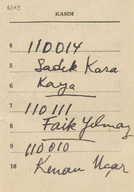 KASIM
4 110014
5 Sadık Kara
6 Kaya
7 110111
8 Faik Yılmaz
9 110010
10 Kenan Uçar